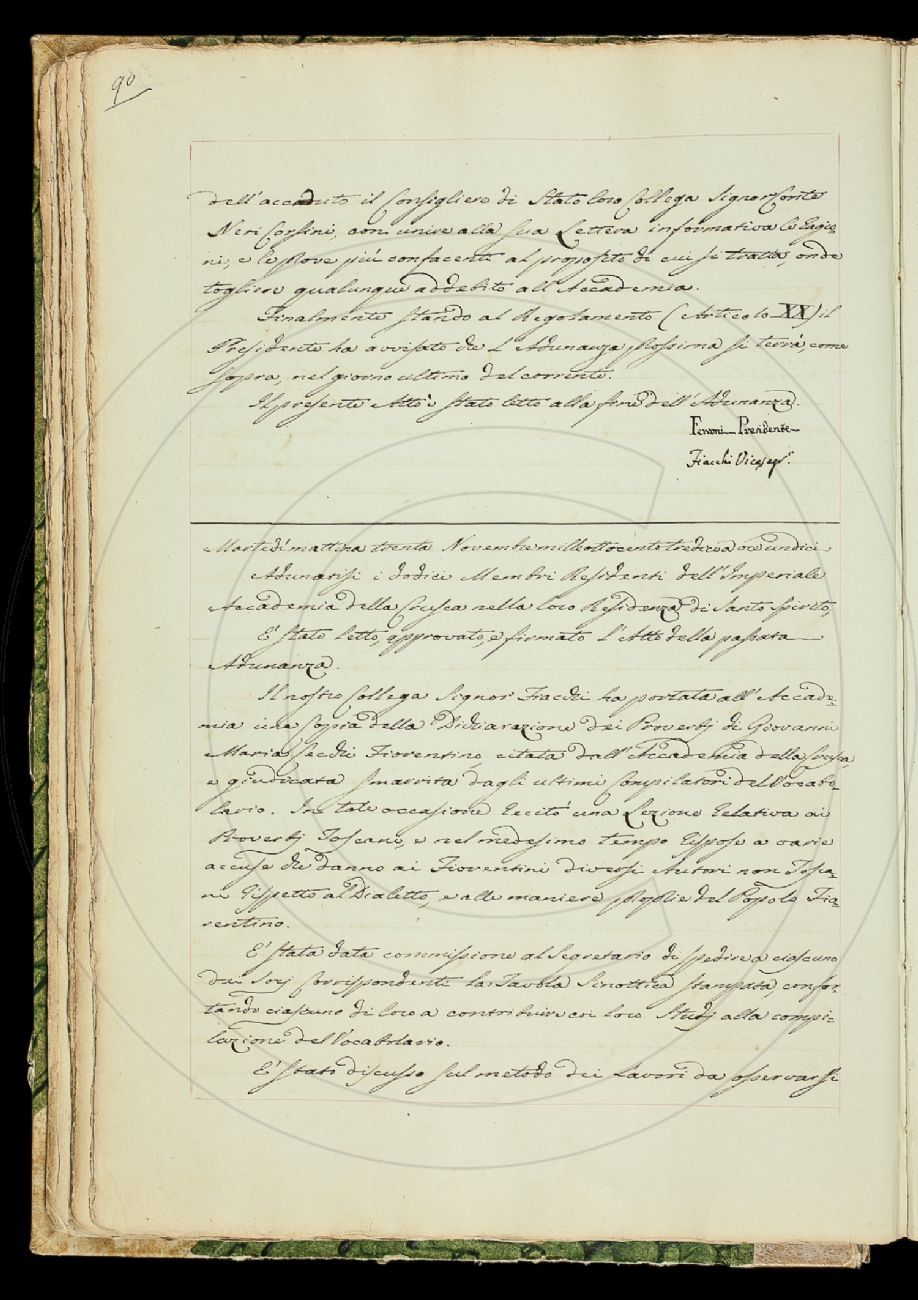 90
dell'accaduto il Consigliere di Stato loro Collega Signor Conte
Neri Corsini, con unire alla sua Lettera informativa le Ragio=
ni, e le Prove più confacenti al proposito di cui si tratta, onde
togliere qualunque addebito all'Accademia.
Finalmente stando al Regolamento (Articolo XX) il
Presidente ha avvisato che l'Adunanza prossima si terrà, come
sopra, nel giorno ultimo del corrente.
Il presente Atto è stato letto alla fine dell'Adunanza.
Ferroni Presidente
Fiacchi Vicesegr.
Martedì mattina trenta Novembre milleottocentotredici a ore undici
Adunatisi i dodici Membri Residenti dell'Imperiale
Accademia della Crusca nella loro Residenza di Santo Spirito,
E' stato letto, approvato, e firmato l'Atto della passata
Adunanza.
Il nostro Collega Signor Fiacchi ha portata all'Accade=
mia una Copia della Dichiarazione dei Proverbj di Giovanni
Maria Cecchi Fiorentino, citata dall'Accademia della Crusca,
e giudicata smarrita dagli ultimi Compilatori del Vocabo=
lario. In tale occasione recitò una Lezione relativa ai
Proverbj Toscani, e nel medesimo tempo rispose a varie
accuse che danno ai Fiorentini diversi Autori non Tosca=
ni rispetto al Dialetto, e alle maniere proprie del Popolo Fio=
rentino.
E' stata data commissione al Segretario di spedire a ciascuno
dei Socj Corrispondenti la Tavola Sinottica stampata, confor=
tando ciascuno di loro a contribuire coi loro Studj alla compi=
lazione del Vocabolario.
E' stato discusso sul metodo dei Lavori da osservarsi